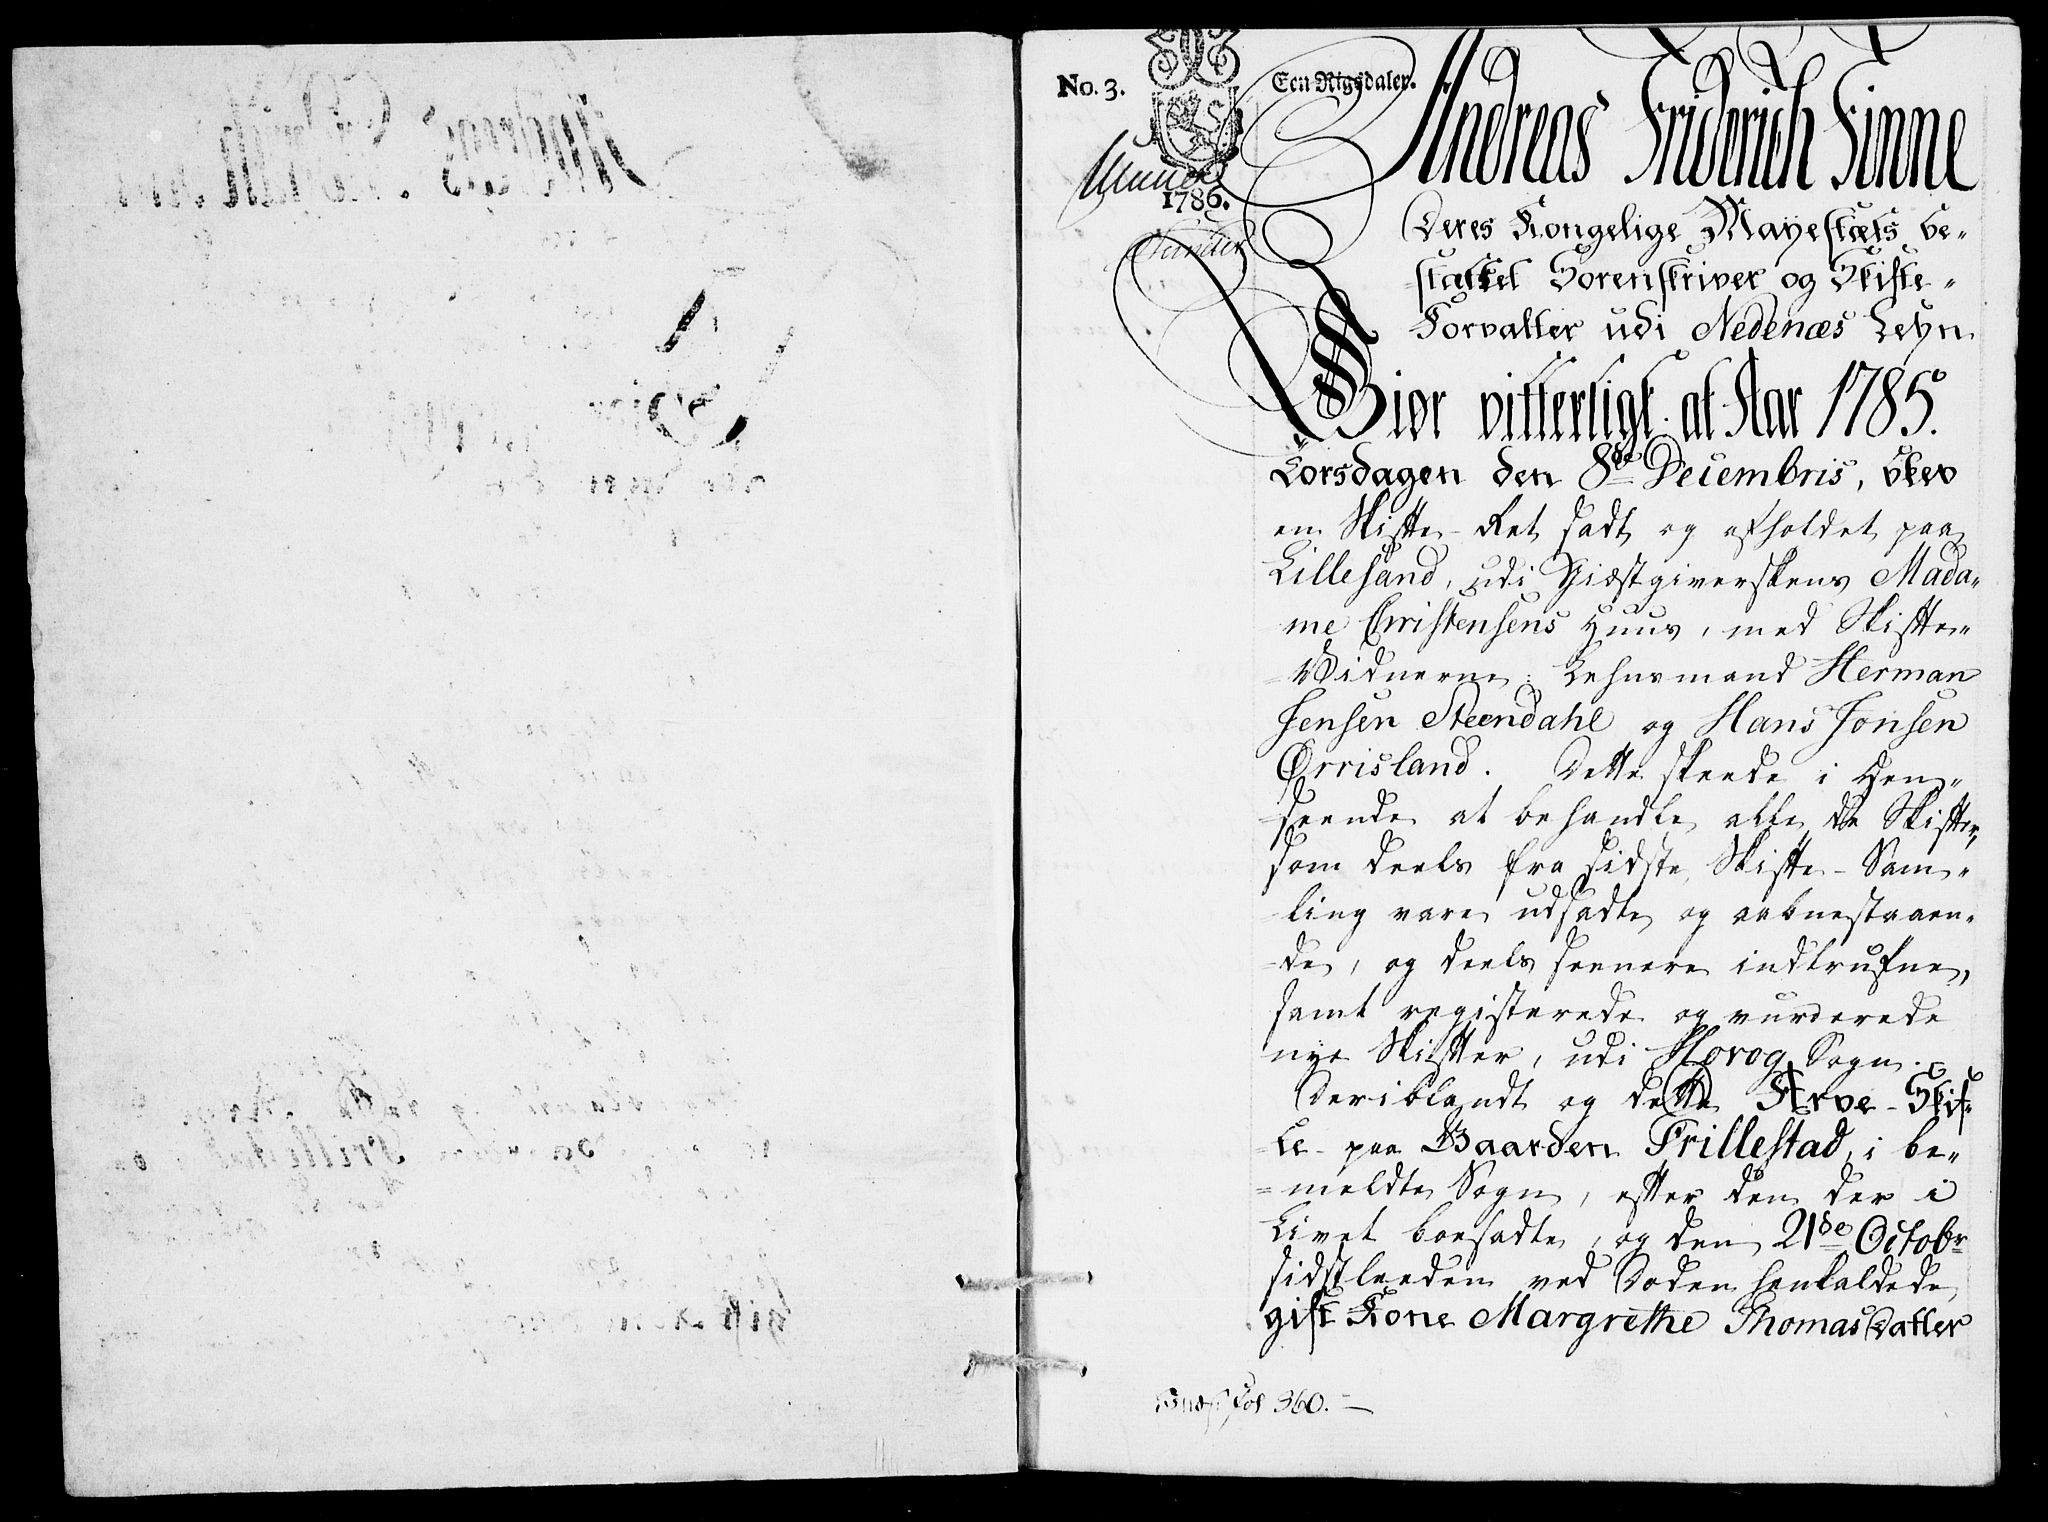 No. 3.
Een Rigsdaler.
1786.
Andreas Friderich Finne
Deres Kongelige Mayestæts be-
stalket Sorenskriver og Skifte-
Forvalter udi Nedenæs Lehn
Giør vitterligt at Aar 1785.
Torsdagen den 8de Decembris, blev
en Skifte-Ret sadt og afholdet paa
Lillesand, udi Giæstgiverskens Mada-
me Christensens Huus, med Skifte-
Vidnerne: Lehnsmand Herman
Jensen Steendahl og Hans Jonsen
Ørrisland. Dette skeede i Hen-
seende at behandle alle de Skifter,
som deels fra sidste Skifte-Sam-
ling vare udsadte og aabnestaaen-
de, og deels seenere indtrufne,
samt registerede og vurderede
nye Skifter, udi Høvog Sogn.
Deriblandt og dette Arve-Skif-
te paa Gaarden Trillestad, i be-
meldte Sogn, efter den der i
Livet boesadte, og den 21de Octobr
sidstleeden ved Døden henkaldede
gift Kone Margrethe Thomasdatter
Fol 360.